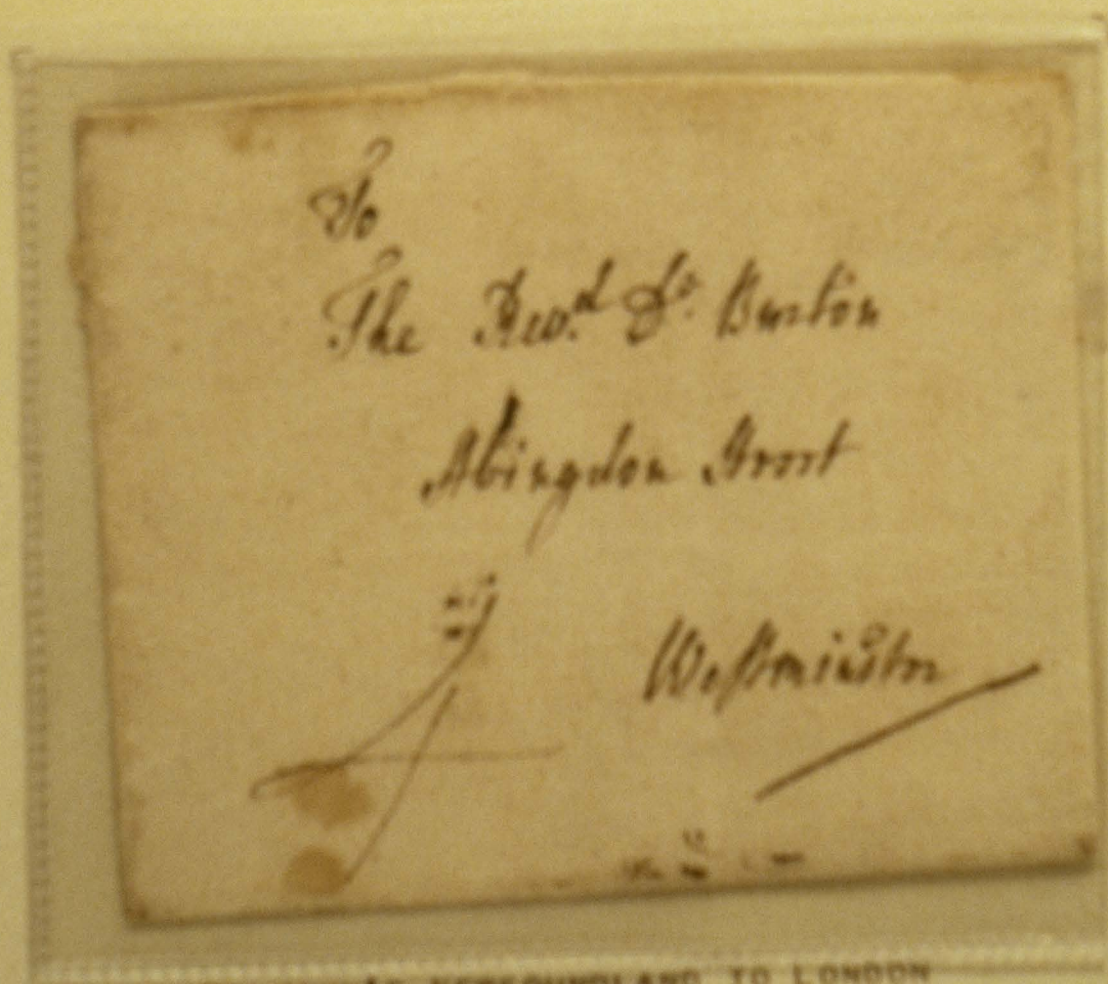 To
The Revd. Dr. Burton
Abingdon Street
Westminster
NEWFOUNDLAND TO LONDON